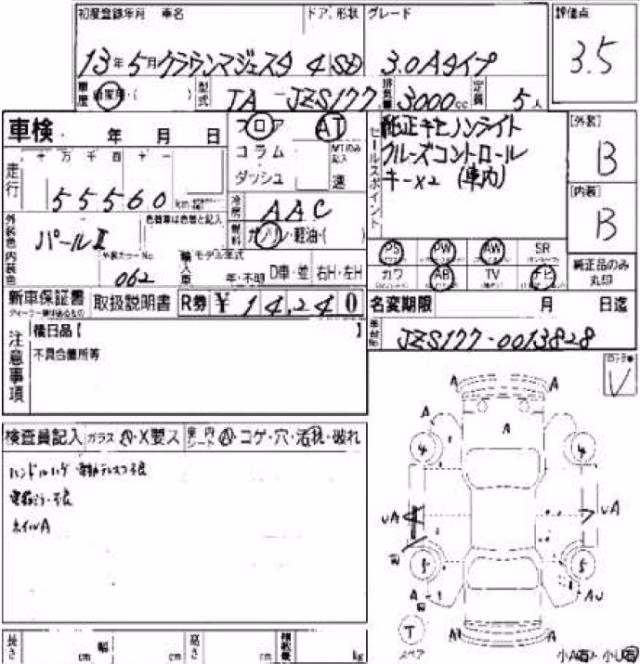 初度登録年月 車名 ドア、形状 グレード 評価点
13年5月 クラウンマジェスタ 4 SD 3.0Aタイプ 3.5
車歴 自家用・( ) 型式 TA-JZS177 排気量 3000cc 定員 5人
車検 年 月 日
フロア AT
コラム
ダッシュ 速
セールスポイント
純正キセノンライト
クルーズコントロール
キー×2 (車内)
[外装]
B
[内装]
B
走行 十万千百十一
55560 km
冷房 AAC
燃料 ガソリン・軽油・( )
外装色 パールⅡ 色替車は色替と記入
内装色 外装カラーNo. 062
輸入車 モデル年式 年・不明 D車・並 右H・左H
PS PW AW SR
カワ AB TV ナビ
純正品のみ丸印
新車保証書 取扱説明書 R券 ¥14,240
名変期限 月 日
JZS177-0013828
注意事項
後日品【 】
不具合箇所等
V
検査員記入 ガラス A・X要ス 内シート A・コゲ・穴・汚れ・破れ
ハンドルハゲ 電動テレスコ不良
電格ミラー不良
ホイルA
A A
A A A
4 4
UA UA
5 5
A AU
T
スペア
A A
小A 小U
長さ cm 幅 cm 高さ cm 積載量 kg